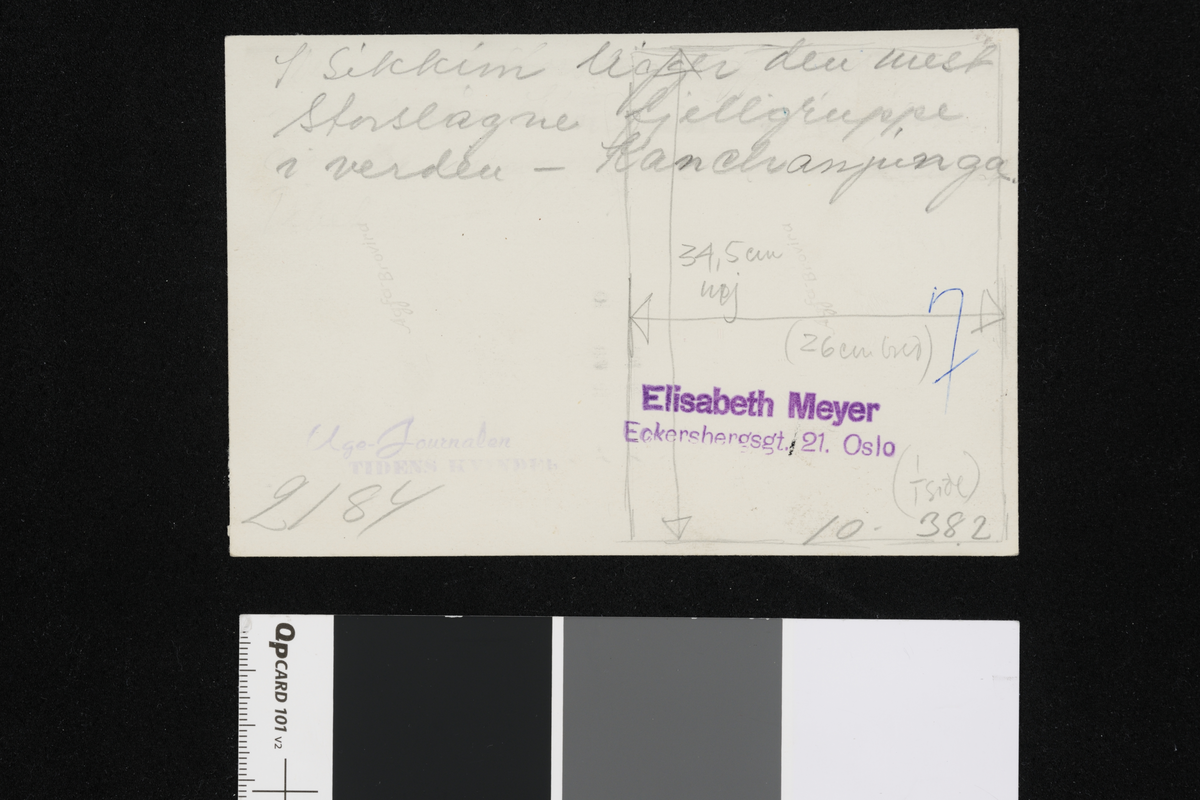 I Sikkim ligger den mest
storslagne fjellgruppe
i verden – Kanchanjinga.
34,5 cm
høj
(26 cm bred)
7
Elisabeth Meyer
Eckersbergsgt. 21. Oslo
Uge-Journalen
TIDENS KVINDER
(1
1 side)
2184
10 - 382
Agfa-Brovira
Agfa-Brovira
QPCARD 101 v2